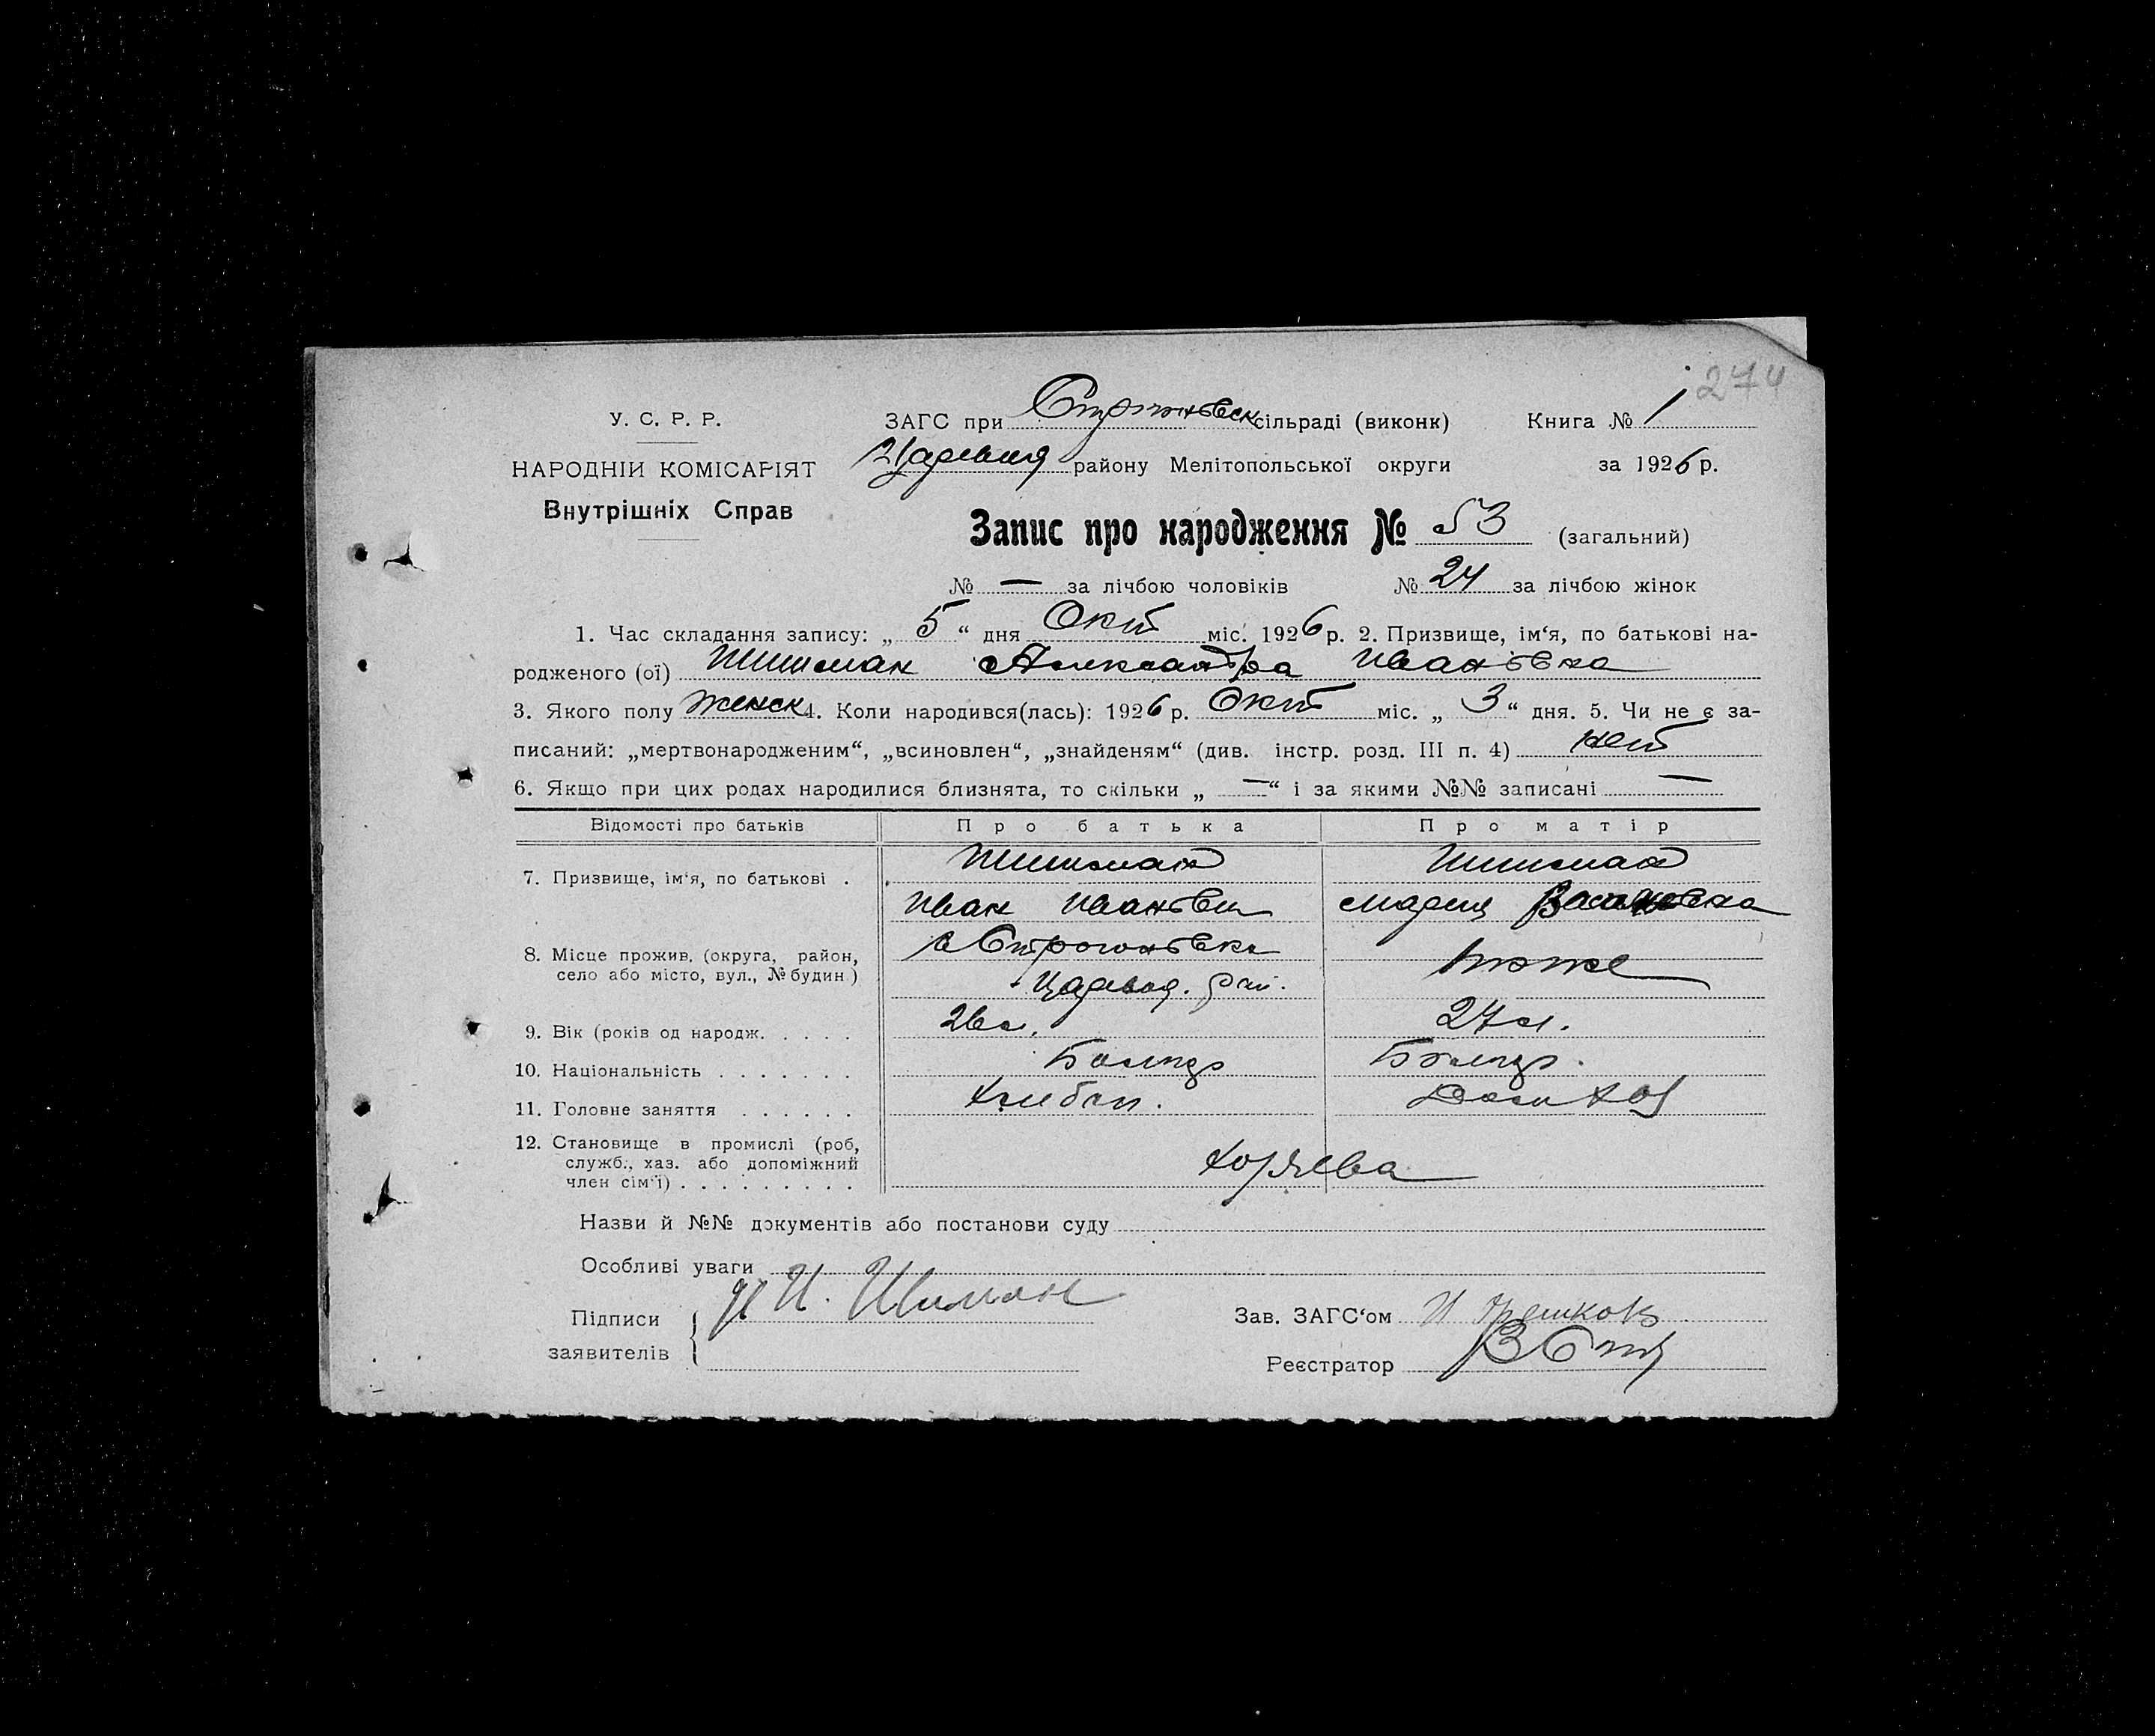 274
У. С. Р. Р.
ЗАГС при Строгановск сільраді (виконк) Книга № 1
НАРОДНІЙ КОМІСАРІЯТ
району Мелітопольської округи за 1926 р.
Внутрішніх Справ
Запис про народження № 53 (загальний)
№ — за лічбою чоловіків № 24 за лічбою жінок
1. Час складання запису: „ 5 “ дня Окт міс. 1926 р. 2. Призвище, ім‘я, по батькові на-
родженого (ої) Шишман Александра Ивановна
3. Якого полу женск 4. Коли народився(лась): 1926 р. Окт міс. „ 3 “ дня. 5. Чи не є за-
писаний: „мертвонародженим“, „всиновлен“, „знайденям“ (див. інстр. розд. III п. 4) нет
6. Якщо при цих родах народилися близнята, то скільки „ — “ і за якими №№ записані —
Відомості про батьків Про батька Про матір
7. Призвище, ім‘я, по батькові . Шишман Шишман
Иван Иванович Мария
8. Місце прожив. (округа, район, с Строгановка тоже
село або місто, вул., № будин.) Царевод. рай.
9. Вік (років од народж. . . . . 26 л. 27 л.
10. Національність . . . . . . . Болгар Болгар.
11. Головне заняття . . . . . . Хлебоп. Домхоз
12. Становище в промислі (роб,
служб., хаз. або допоміжний хозяева
член сім‘ї) . . . . . . . . .
Назви й №№ документів або постанови суду
Особливі уваги
Підписи И. Шишман Зав. ЗАГС‘ом
заявителів
Реєстратор